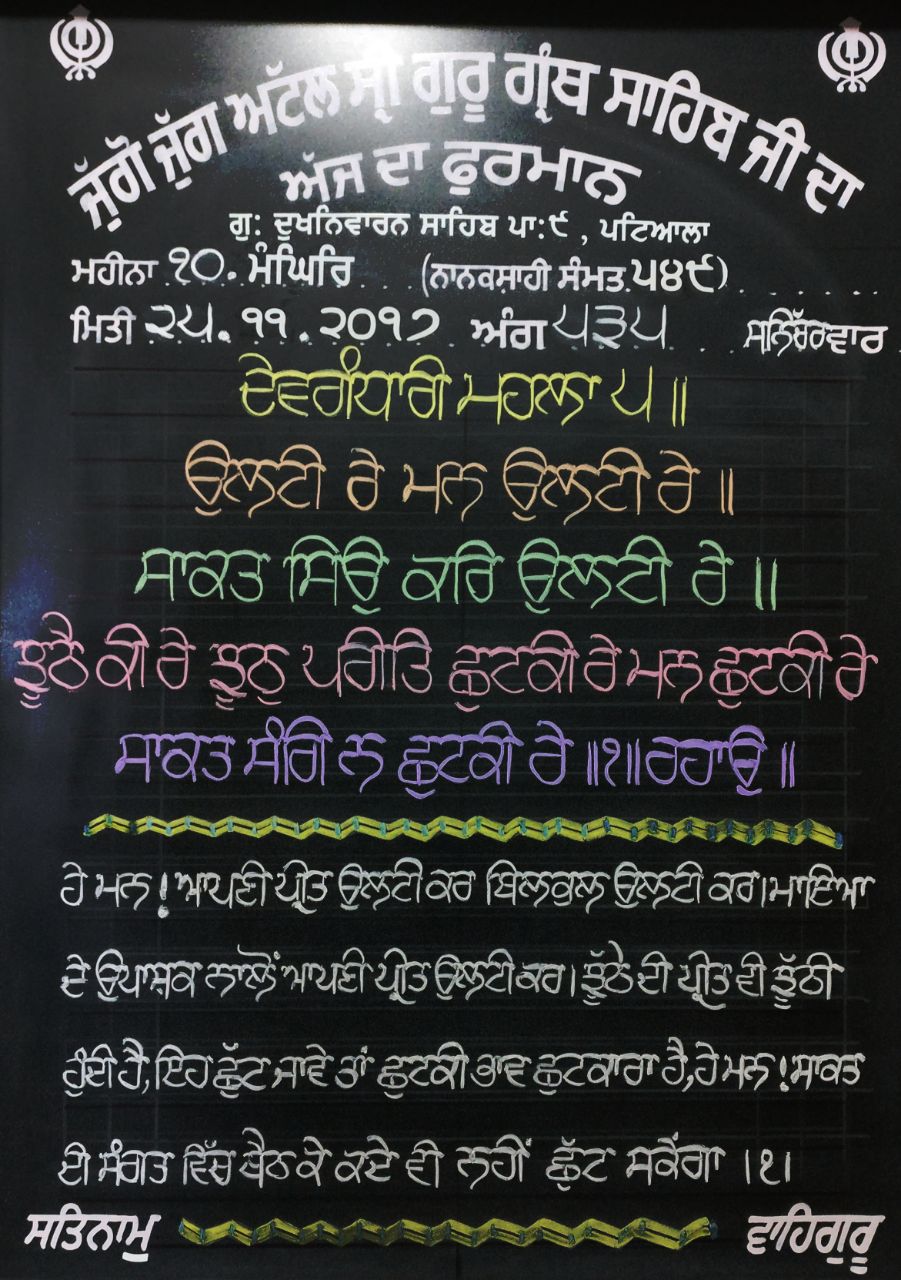 ਜੁੱਗੋ ਜੁੱਗ ਅਟੱਲ ਸ੍ਰੀ ਗੁਰੂ ਗ੍ਰੰਥ ਸਾਹਿਬ ਜੀ ਦਾ
ਅੱਜ ਦਾ ਫੁਰਮਾਨ
ਗੁ: ਦੁਖਨਿਵਾਰਨ ਸਾਹਿਬ ਪਾ:੯ , ਪਟਿਆਲਾ
ਮਹੀਨਾ ੧੦. ਮੰਘਿਰਿ (ਨਾਨਕਸ਼ਾਹੀ ਸੰਮਤ ੫੪੯)
ਮਿਤੀ ੨੫.੧੧.੨੦੧੭ ਅੰਗ ੫੩੫ ਸਨਿੱਚਰਵਾਰ
ਦੇਵਗੰਧਾਰੀ ਮਹਲਾ ੫ ॥
ਉਲਟੀ ਰੇ ਮਨ ਉਲਟੀ ਰੇ ॥
ਸਾਕਤ ਸਿਉ ਕਰਿ ਉਲਟੀ ਰੇ ॥
ਝੂਠੈ ਕੀ ਰੇ ਝੂਠੁ ਪਰੀਤਿ ਛੁਟਕੀ ਰੇ ਮਨ ਛੁਟਕੀ ਰੇ
ਸਾਕਤ ਸੰਗਿ ਨ ਛੁਟਕੀ ਰੇ ॥੧॥ਰਹਾਉ ॥
ਹੇ ਮਨ! ਆਪਣੀ ਪ੍ਰੀਤ ਉਲਟੀ ਕਰ ਬਿਲਕੁਲ ਉਲਟੀ ਕਰ।ਮਾਇਆ
ਦੇ ਉਪਾਸ਼ਕ ਨਾਲੋਂ ਆਪਣੀ ਪ੍ਰੀਤ ਉਲਟੀ ਕਰ। ਝੂੱਠੇ ਦੀ ਪ੍ਰੀਤ ਵੀ ਝੂੱਠੀ
ਹੁੰਦੀ ਹੈ,ਇਹ ਛੁੱਟ ਜਾਵੇ ਤਾਂ ਛੁਟਕੀ ਭਾਵ ਛੁਟਕਾਰਾ ਹੈ,ਹੇ ਮਨ!ਸਾਕਤ
ਦੀ ਸੰਗਤ ਵਿੱਚ ਬੈਠ ਕੇ ਕਦੇ ਵੀ ਨਹੀਂ ਛੁੱਟ ਸਕੇਂਗਾ ।੧।
ਸਤਿਨਾਮੁ ਵਾਹਿਗੁਰੂ